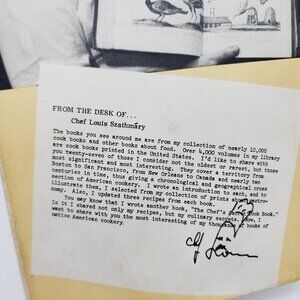 FROM THE DESK OF...
Chef Louis Szathmáry
The books you see around me are from my collection of nearly 10,000
cook books and other books about food. Over 4,000 volumes in my library
are cook books printed in the United States. I'd like to share with
you twenty-seven of those I consider not the oldest or rarest, but those
most significant and most interesting. They cover a territory from
Boston to San Francisco, from New Orleans to Canada and nearly two
centuries in time, thus giving a chronological and geographical cross
section of American cookery. I wrote an introduction to each, and to
illustrate them, I selected from my collection of prints about gastro-
nomy. Also, I updated three recipes from each book.
You may know that I wrote another book, "The Chef's Secret Cook Book."
In it I shared not only my recipes, but my culinary secrets. Now, I
want to share with you the most interesting of my thousands of books of
native American cookery.